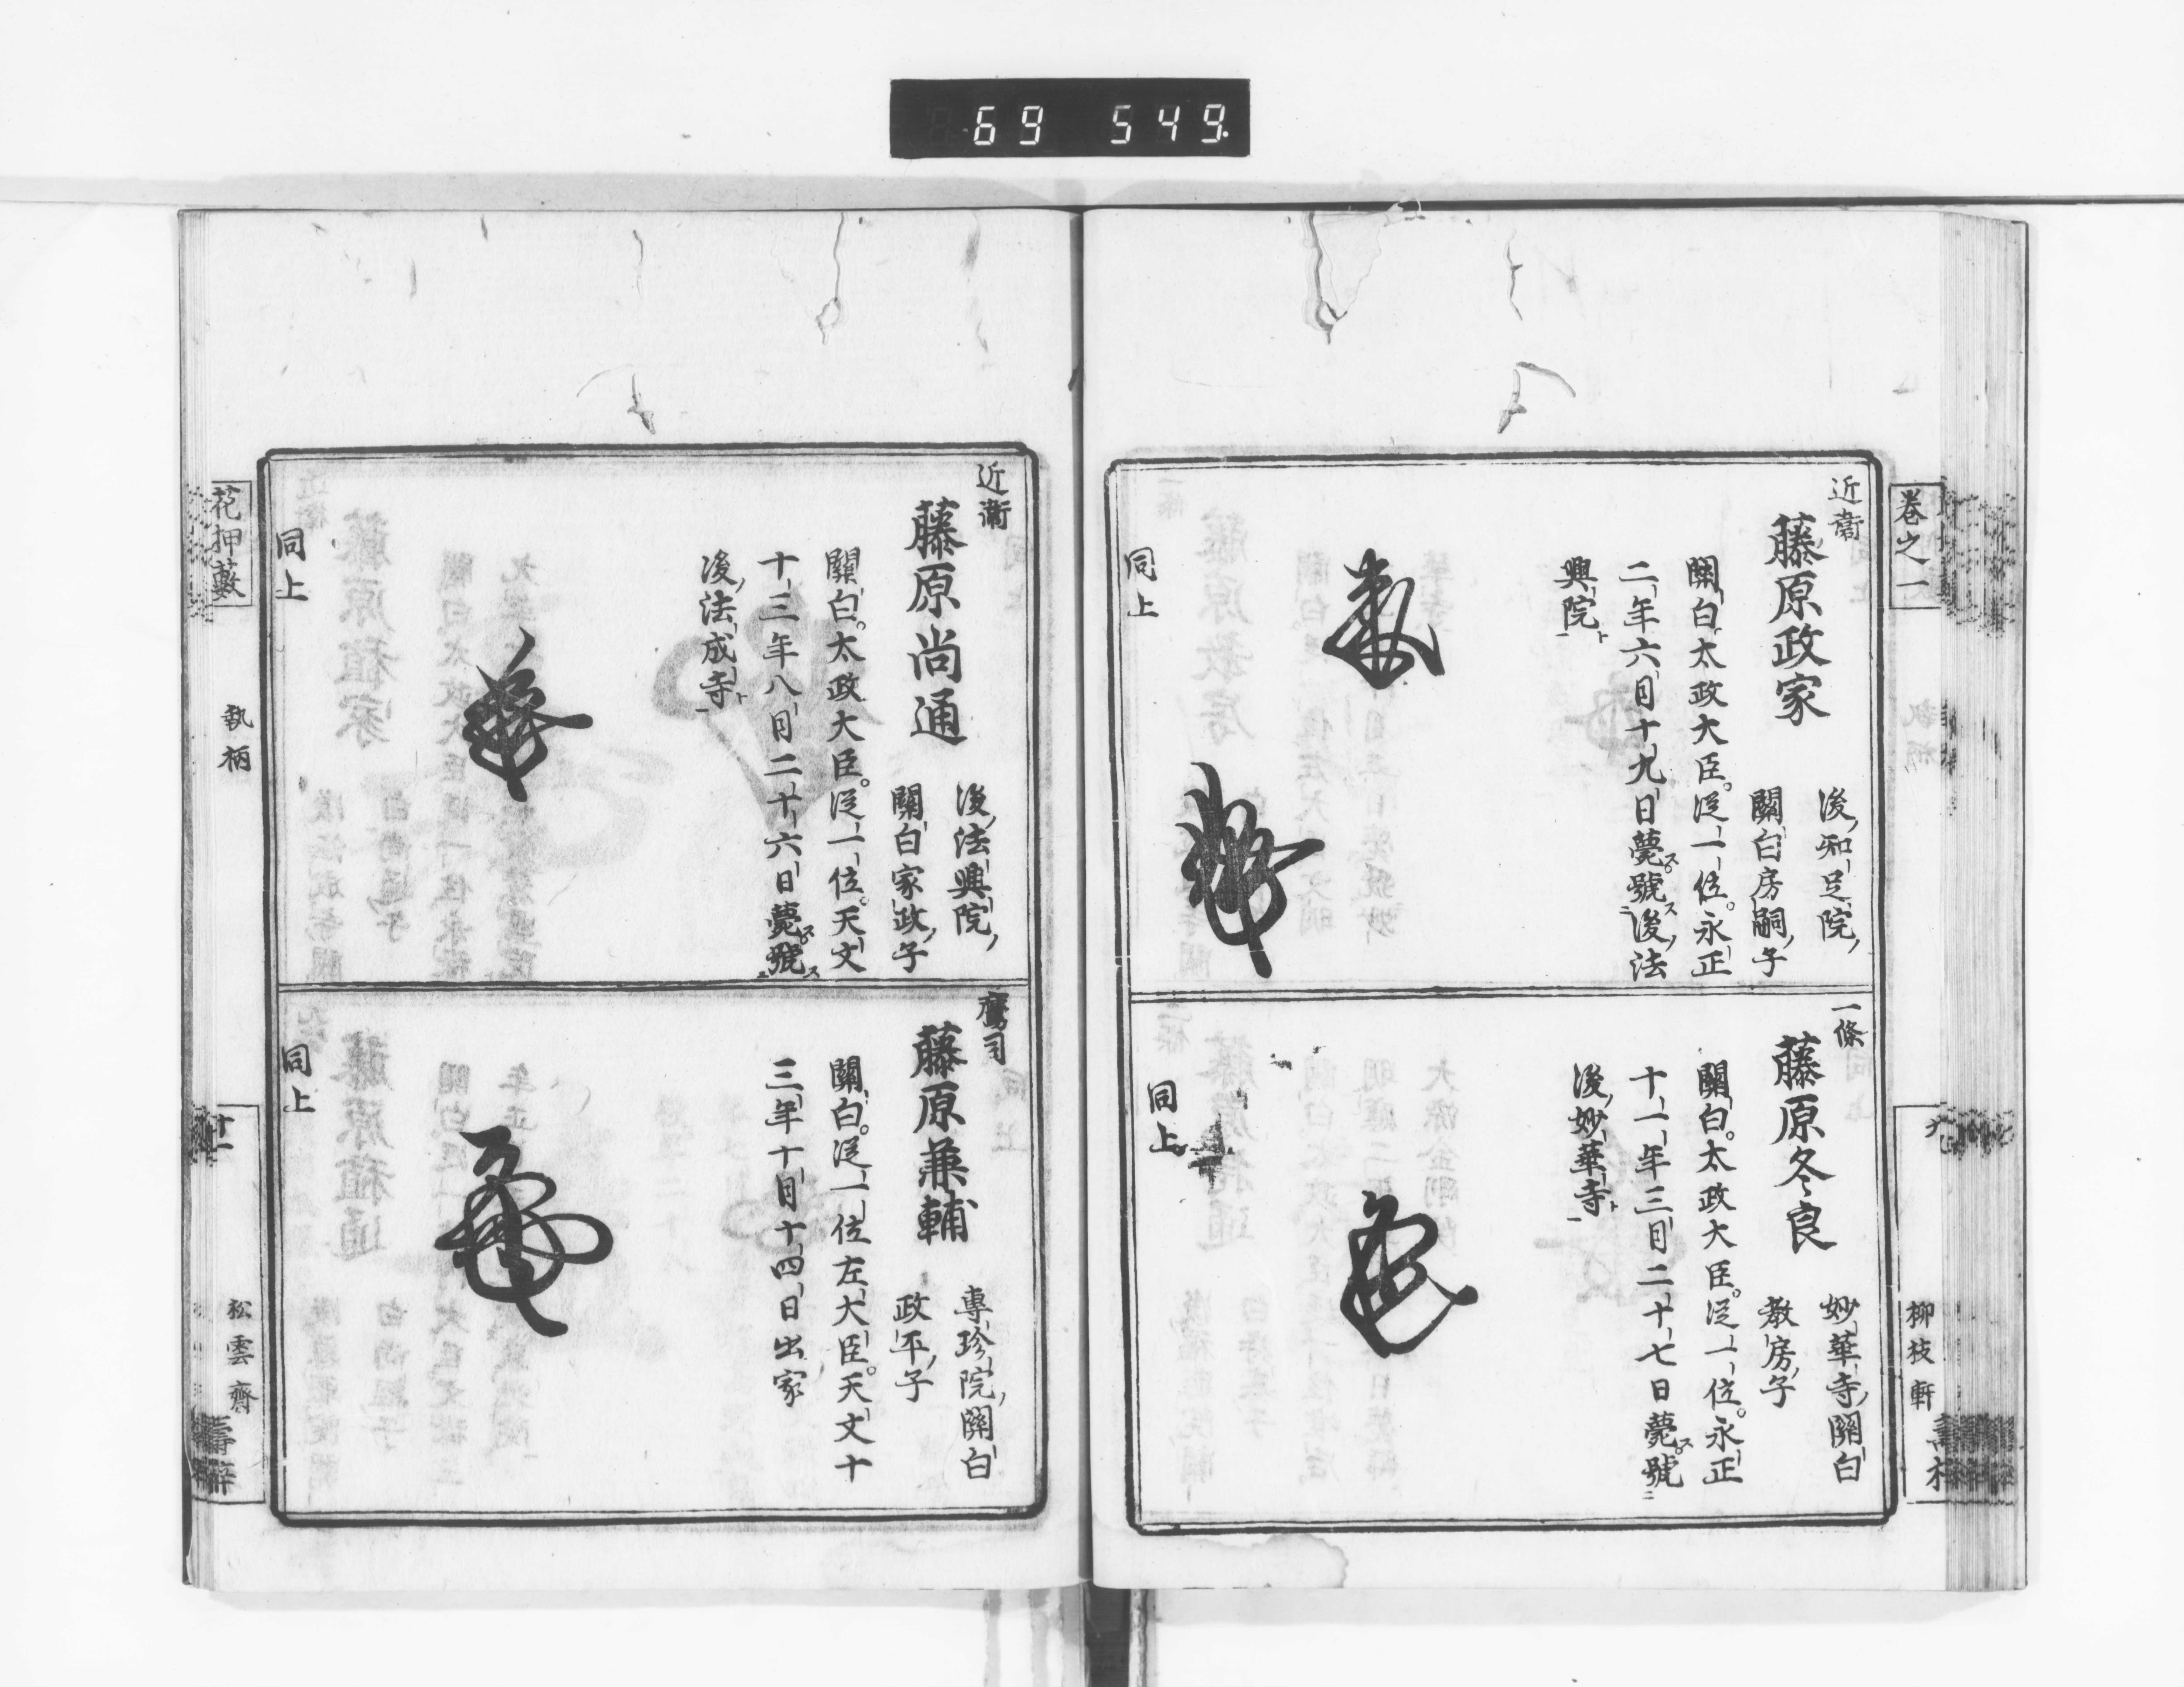 69 549
卷之一
九
柳枝軒
近衞
藤原政家
後知足院
關白房嗣子
關白太政大臣從一位永正
二年六月十九日薨號後法
興院
同上
一條
藤原冬良
妙華寺關白
教房子
關白太政大臣從一位永正
十一年三月二十七日薨號
後妙華寺
同上
近衞
藤原尚通
後法興院
關白家政子
關白太政大臣從一位天文
十三年八月二十六日薨號
後法成寺
同上
鷹司
藤原兼輔
專珍院關白
政平子
關白從一位左大臣天文十
三年十月十四日出家
同上
花押藪
執柄
十一
松雲齋